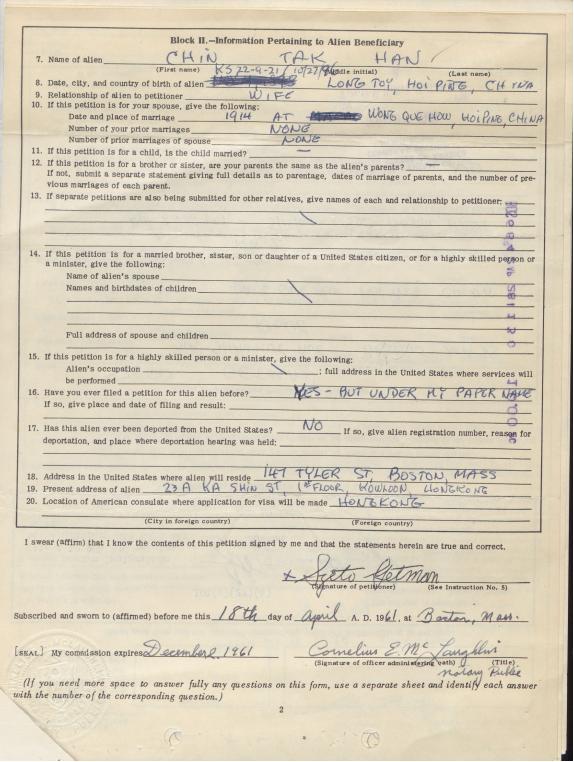 Block II.—Information Pertaining to Alien Beneficiary
7. Name of alien CHIN TAK HAN
(First name) (Middle initial) (Last name)
KS 22-9-21 / 10/27/96
8. Date, city, and country of birth of alien LONG TOY, HOI PING, CHINA
9. Relationship of alien to petitioner WIFE
10. If this petition is for your spouse, give the following:
Date and place of marriage 1914 AT WONG QUE HOW, HOIPING, CHINA
Number of your prior marriages NONE
Number of prior marriages of spouse NONE
11. If this petition is for a child, is the child married? —
12. If this petition is for a brother or sister, are your parents the same as the alien's parents? —
If not, submit a separate statement giving full details as to parentage, dates of marriage of parents, and the number of pre-
vious marriages of each parent.
13. If separate petitions are also being submitted for other relatives, give names of each and relationship to petitioner:
14. If this petition is for a married brother, sister, son or daughter of a United States citizen, or for a highly skilled person or
a minister, give the following:
Name of alien's spouse
Names and birthdates of children
Full address of spouse and children
15. If this petition is for a highly skilled person or a minister, give the following:
Alien's occupation ; full address in the United States where services will
be performed
16. Have you ever filed a petition for this alien before? YES - BUT UNDER MY PAPER NAME
If so, give place and date of filing and result:
17. Has this alien ever been deported from the United States? NO If so, give alien registration number, reason for
deportation, and place where deportation hearing was held:
18. Address in the United States where alien will reside 147 TYLER ST, BOSTON, MASS
19. Present address of alien 23A KA SHIN ST, 1ST FLOOR, KOWLOON HONGKONG
20. Location of American consulate where application for visa will be made HONGKONG
(City in foreign country) (Foreign country)
I swear (affirm) that I know the contents of this petition signed by me and that the statements herein are true and correct.
x Seeto Hetman
(Signature of petitioner) (See Instruction No. 5)
Subscribed and sworn to (affirmed) before me this 18th day of April A. D. 1961, at Boston, Mass.
[SEAL] My commission expires December 1961 Cornelius E. McLaughlin
(Signature of officer administering oath) (Title)
Notary Public
(If you need more space to answer fully any questions on this form, use a separate sheet and identify each answer
with the number of the corresponding question.)
2